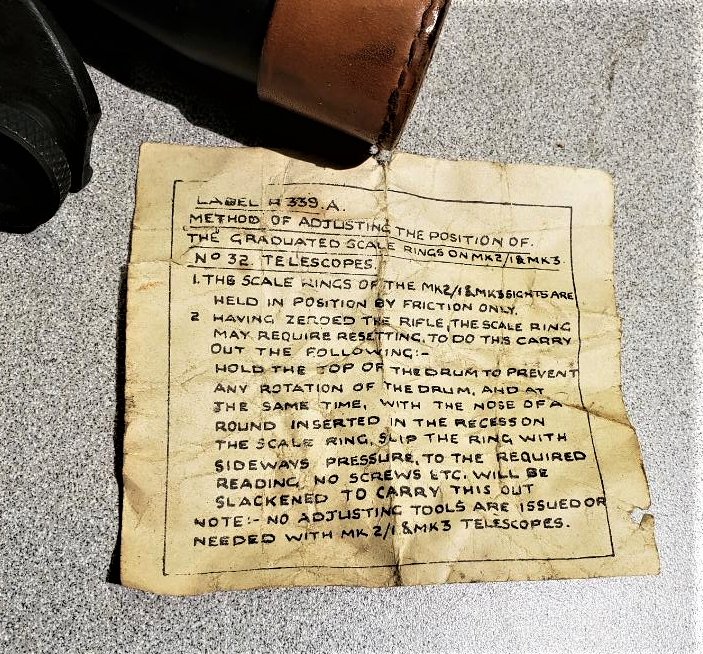 LABEL H 339.A.
METHOD OF ADJUSTING THE POSITION OF.
THE GRADUATED SCALE RINGS ON MK2/1 & MK3
Nº 32. TELESCOPES.
1. THE SCALE RINGS OF THE MK2/1 & MK3 SIGHTS ARE
HELD IN POSITION BY FRICTION ONLY.
2 HAVING ZEROED THE RIFLE, THE SCALE RING
MAY REQUIRE RESETTING, TO DO THIS CARRY
OUT THE FOLLOWING:-
HOLD THE TOP OF THE DRUM TO PREVENT
ANY ROTATION OF THE DRUM, AND AT
THE SAME TIME, WITH THE NOSE OF A
ROUND INSERTED IN THE RECESS ON
THE SCALE RING, SLIP THE RING WITH
SIDEWAYS PRESSURE, TO THE REQUIRED
READING, NO SCREWS ETC. WILL BE
SLACKENED TO CARRY THIS OUT
NOTE:- NO ADJUSTING TOOLS ARE ISSUED OR
NEEDED WITH MK 2/1 & MK3 TELESCOPES.